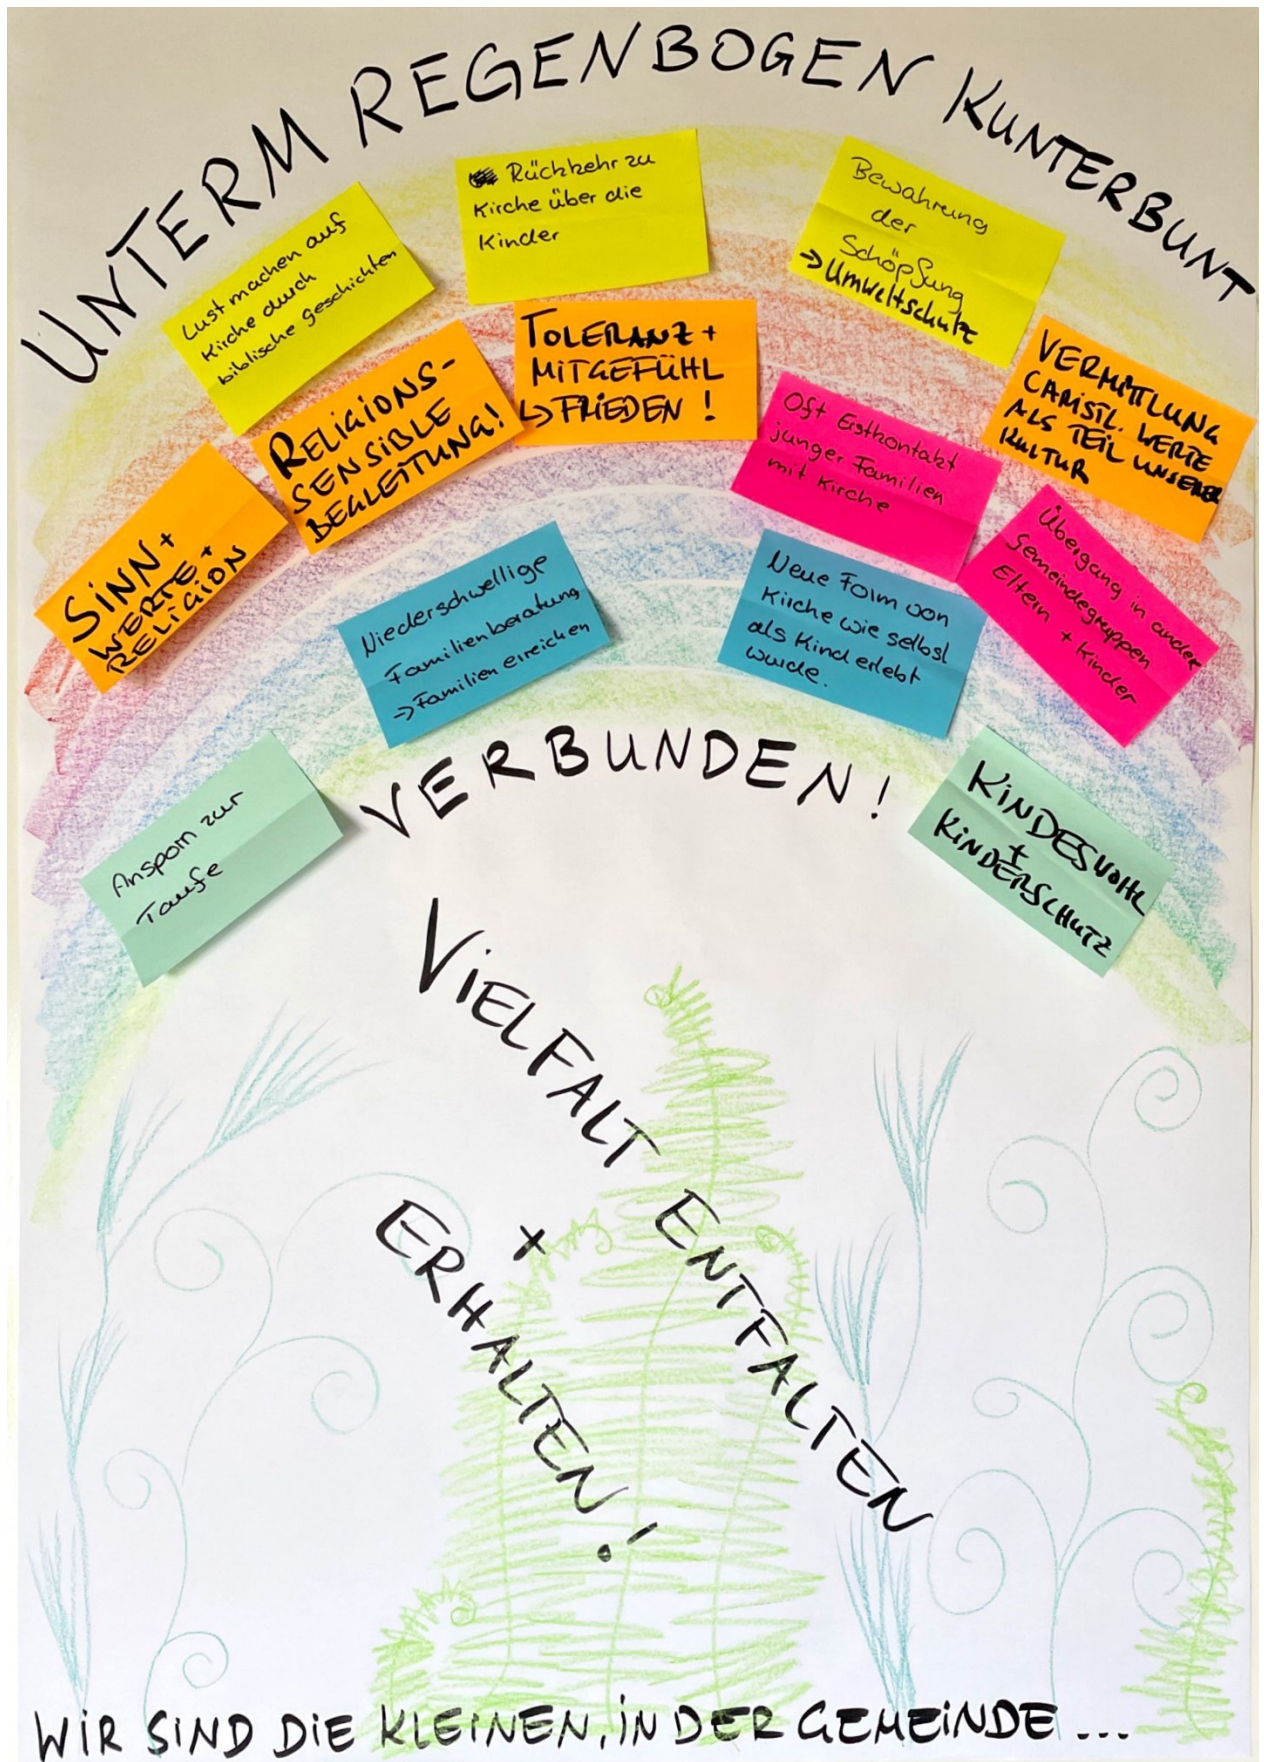 UNTERM REGENBOGEN KUNTERBUNT
Lust machen auf
Kirche durch
biblische geschichten
Rückkehr zu
Kirche über die
Kinder
Bewahrung
der
Schöpfung
→ Umweltschutz
SINN +
WERTE +
RELIGION
RELIGIONS-
SENSIBLE
BEGLEITUNG!
TOLERANZ +
MITGEFÜHL
↳ FRIEDEN !
Oft Erstkontakt
junger Familien
mit Kirche
VERMITTLUNG
CHRISTL. WERTE
ALS TEIL UNSERER
KULTUR
Niederschwellige
Familienberatung
→ Familien erreichen
Neue Form von
Kirche wie selbst
als Kind erlebt
wurde.
Übergang in andere
Gemeindegruppen
Eltern + Kinder
Ansporn zur
Taufe
VERBUNDEN!
KINDESWOHL
+
KINDERSCHUTZ
VIELFALT ENTFALTEN
+
ERHALTEN!
WIR SIND DIE KLEINEN, IN DER GEMEINDE ...